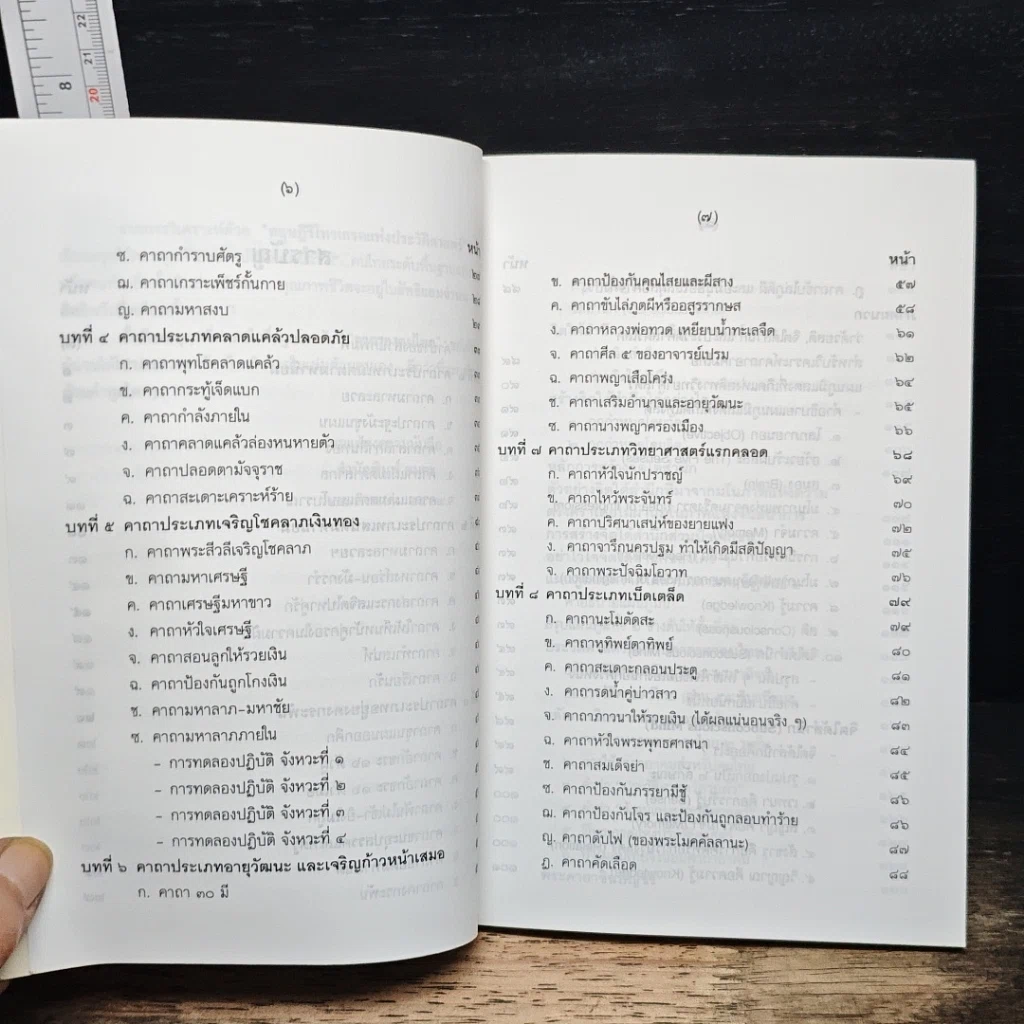 22
21
20
8
(๖)
หน้า
ซ. คาถากำราบศัตรู
ฌ. คาถาเกราะเพ็ชร์กั้นกาย
ญ. คาถามหาสงบ
บทที่ ๔ คาถาประเภทคลาดแคล้วปลอดภัย
ก. คาถาพุทโธคลาดแคล้ว
ข. คาถากระทู้เจ็ดแบก
ค. คาถากำลังภายใน
ง. คาถาคลาดแคล้วล่องหนหายตัว
จ. คาถาปลอดตามัจจุราช
ฉ. คาถาสะเดาะเคราะห์ร้าย
บทที่ ๕ คาถาประเภทเจริญโชคลาภเงินทอง
ก. คาถาพระสีวลีเจริญโชคลาภ
ข. คาถามหาเศรษฐี
ค. คาถาเศรษฐีมหาขาว
ง. คาถาหัวใจเศรษฐี
จ. คาถาสอนลูกให้รวยเงิน
ฉ. คาถาป้องกันถูกโกงเงิน
ช. คาถามหาลาภ-มหาชัย
ซ. คาถามหาลาภภายใน
- การทดลองปฏิบัติ จังหวะที่ ๑
- การทดลองปฏิบัติ จังหวะที่ ๒
- การทดลองปฏิบัติ จังหวะที่ ๓
- การทดลองปฏิบัติ จังหวะที่ ๔
บทที่ ๖ คาถาประเภทอายุวัฒนะ และเจริญก้าวหน้าเสมอ
ก. คาถา ๓๐ มี
(๗)
หน้า
ข. คาถาป้องกันคุณไสยและผีสาง ๕๗
ค. คาถาขับไล่ภูตผีหรืออสูรรากษส ๕๘
ง. คาถาหลวงพ่อทวด เหยียบน้ำทะเลจืด ๖๑
จ. คาถาศีล ๕ ของอาจารย์เปรม ๖๒
ฉ. คาถาพญาเสือโคร่ง ๖๔
ช. คาถาเสริมอำนาจและอายุวัฒนะ ๖๕
ซ. คาถานางพญาครองเมือง ๖๖
บทที่ ๗ คาถาประเภทวิทยาศาสตร์แรกคลอด ๖๘
ก. คาถาหัวใจนักปราชญ์ ๖๙
ข. คาถาไหว้พระจันทร์ ๗๐
ค. คาถาปริศนาเสน่ห์ของยายแฟง ๗๒
ง. คาถาจารึกนครปฐม ทำให้เกิดมีสติปัญญา ๗๕
จ. คาถาพระปัจฉิมโอวาท ๗๖
บทที่ ๘ คาถาประเภทเบ็ดเตล็ด ๗๙
ก. คาถานะโมตัดสะ ๗๙
ข. คาถาหูทิพย์ตาทิพย์ ๘๐
ค. คาถาสะเดาะกลอนประตู ๘๑
ง. คาถารดน้ำคู่บ่าวสาว ๘๒
จ. คาถาภาวนาให้รวยเงิน (ได้ผลแน่นอนจริง ๆ) ๘๓
ฉ. คาถาหัวใจพระพุทธศาสนา ๘๔
ช. คาถาสมเด็จย่า ๘๕
ซ. คาถาป้องกันภรรยามีชู้ ๘๖
ฌ. คาถาป้องกันโจร และป้องกันถูกลอบทำร้าย ๘๖
ญ. คาถาดับไฟ (ของพระโมคคัลลานะ) ๘๗
ฎ. คาถาคัดเลือด ๘๘